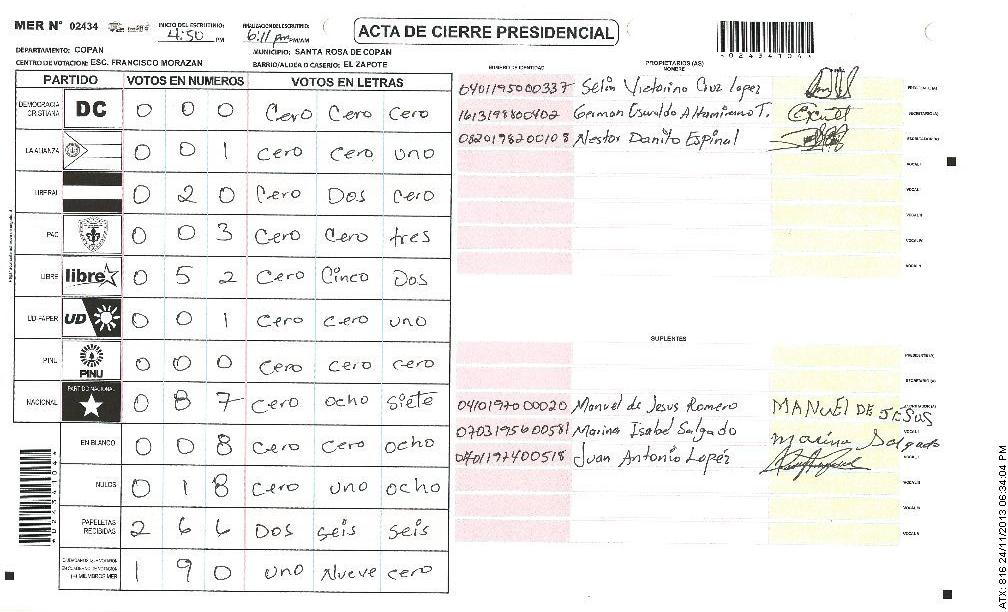 MER N° 02434
INICIO DEL ESCRUTINIO: 4:50 PM
FINALIZACION DEL ESCRUTINIO: 6:11 pm PM/AM
ACTA DE CIERRE PRESIDENCIAL
DEPARTAMENTO: COPAN
MUNICIPIO: SANTA ROSA DE COPAN
CENTRO DE VOTACION: ESC. FRANCISCO MORAZAN
BARRIO/ALDEA O CASERIO: EL ZAPOTE
PARTIDO VOTOS EN NUMEROS VOTOS EN LETRAS
DEMOCRACIA CRISTIANA DC 0 0 0 Cero Cero Cero
LA ALIANZA 0 0 1 Cero Cero uno
LIBERAL 0 2 0 Cero Dos Cero
PAC 0 0 3 Cero Cero tres
LIBRE libre 0 5 2 Cero Cinco Dos
UD-FAPER UD 0 0 1 Cero cero uno
PINU PINU 0 0 0 Cero cero cero
NACIONAL PARTIDO NACIONAL 0 8 7 Cero ocho siete
EN BLANCO 0 0 8 Cero Cero ocho
NULOS 0 1 8 Cero uno ocho
PAPELETAS RECIBIDAS 2 6 6 Dos seis seis
1 9 0 uno Nueve cero
NUMERO DE IDENTIDAD
PROPIETARIOS (AS)
NOMBRE
0401195000337 Selin Victorino Cruz Lopez
1613198800402 German Eswaldo Altamirano T.
0820198200108 Nestor Danilo Espinal
VOCAL I
VOCAL II
VOCAL III
VOCAL IV
VOCAL V
SUPLENTES
PRESIDENTE(A)
SECRETARIO(A)
0401197000020 Manuel de Jesus Romero MANUEL DE JESUS
0703195600581 Marina Isabel Salgado Marina Salgado
0401197400518 Juan Antonio Lopéz
VOCAL III
VOCAL IV
VOCAL V
ATX: 816 24/11/2013 06:34:04 PM